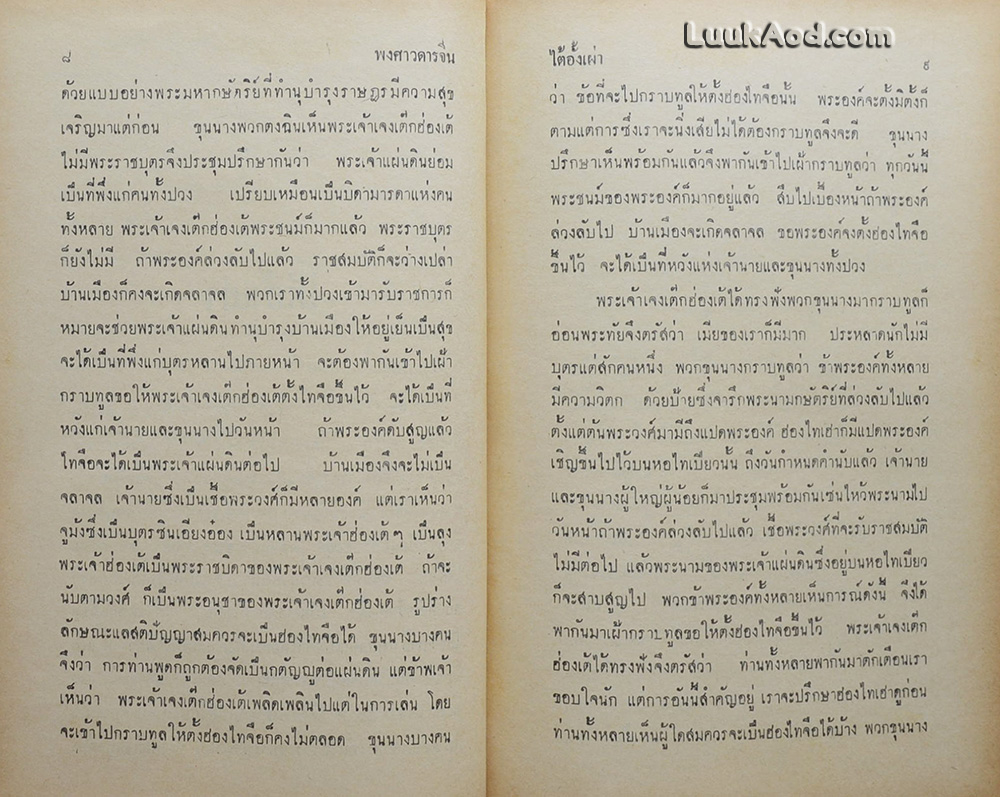 ๘ พงศาวดารจีน
ด้วยแบบอย่างพระมหากษัตริย์ที่ทำนุบำรุงราษฎรมีความสุข
เจริญมาแต่ก่อน ขุนนางพวกตงฉินเห็นพระเจ้าเจงเต๊กฮ่องเต้
ไม่มีพระราชบุตรจึงประชุมปรึกษากันว่า พระเจ้าแผ่นดินย่อม
เป็นที่พึ่งแก่คนทั้งปวง เปรียบเหมือนเป็นบิดามารดาแห่งคน
ทั้งหลาย พระเจ้าเจงเต๊กฮ่องเต้พระชนม์ก็มากแล้ว พระราชบุตร
ก็ยังไม่มี ถ้าพระองค์ล่วงลับไปแล้ว ราชสมบัติก็จะว่างเปล่า
บ้านเมืองก็คงจะเกิดจลาจล พวกเราทั้งปวงเข้ามารับราชการก็
หมายจะช่วยพระเจ้าแผ่นดินทำนุบำรุงบ้านเมืองให้อยู่เย็นเป็นสุข
จะได้เป็นที่พึ่งแก่บุตรหลานไปภายหน้า จะต้องพากันเข้าไปเฝ้า
กราบทูลขอให้พระเจ้าเจงเต๊กฮ่องเต้ตั้งไทจือขึ้นไว้ จะได้เป็นที่
หวังแก่เจ้านายและขุนนางไปวันหน้า ถ้าพระองค์ดับสูญแล้ว
ไทจือจะได้เป็นพระเจ้าแผ่นดินต่อไป บ้านเมืองจึงจะไม่เป็น
จลาจล เจ้านายซึ่งเป็นเชื้อพระวงศ์ก็มีหลายองค์ แต่เราเห็นว่า
จูมังซึ่งเป็นบุตรซินเอียงอ๋อง เป็นหลานพระเจ้าฮ่องเต้ๆ เป็นลุง
พระเจ้าฮ่องเต้เป็นพระราชบิดาของพระเจ้าเจงเต๊กฮ่องเต้ ถ้าจะ
นับตามวงศ์ ก็เป็นพระอนุชาของพระเจ้าเจงเต๊กฮ่องเต้ รูปร่าง
ลักษณะแลสติปัญญาสมควรจะเป็นฮ่องไทจือได้ ขุนนางบางคน
จึงว่า การท่านพูดก็ถูกต้องจัดเป็นกตัญญูต่อแผ่นดิน แต่ข้าพเจ้า
เห็นว่า พระเจ้าเจงเต๊กฮ่องเต้เพลิดเพลินไปแต่ในการเล่น โดย
จะเข้าไปกราบทูลให้ตั้งฮ่องไทจือก็คงไม่ตลอด ขุนนางบางคน
ไต้อั้งเผ่า ๙
LuukAod.com
ว่า ข้อที่จะไปกราบทูลให้ตั้งฮ่องไทจือนั้น พระองค์จะตั้งมิตั้งก็
ตามแต่การซึ่งเราจะนิ่งเสียไม่ได้ต้องกราบทูลจึงจะดี ขุนนาง
ปรึกษาเห็นพร้อมกันแล้วจึงพากันเข้าไปเฝ้ากราบทูลว่า ทุกวันนี้
พระชนม์ของพระองค์ก็มากอยู่แล้ว สืบไปเบื้องหน้าถ้าพระองค์
ล่วงลับไป บ้านเมืองจะเกิดจลาจล ขอพระองค์จงตั้งฮ่องไทจือ
ขึ้นไว้ จะได้เป็นที่หวังแห่งเจ้านายและขุนนางทั้งปวง
พระเจ้าเจงเต๊กฮ่องเต้ได้ทรงฟังพวกขุนนางมากราบทูลก็
อ่อนพระทัยจึงตรัสว่า เมียของเราก็มีมาก ประหลาดนักไม่มี
บุตรแต่สักคนหนึ่ง พวกขุนนางกราบทูลว่า ข้าพระองค์ทั้งหลาย
มีความวิตก ด้วยป้ายซึ่งจารึกพระนามกษัตริย์ที่ล่วงลับไปแล้ว
ตั้งแต่ต้นพระวงศ์มามีถึงแปดพระองค์ ฮ่องไทเฮ่าก็มีแปดพระองค์
เชิญขึ้นไปไว้บนหอไทเบียวนั้น ถึงวันกำหนดคำนับแล้ว เจ้านาย
และขุนนางผู้ใหญ่ผู้น้อยก็มาประชุมพร้อมกันเซ่นไหว้พระนามไป
วันหน้าถ้าพระองค์ล่วงลับไปแล้ว เชื้อพระวงศ์ที่จะรับราชสมบัติ
ไม่มีต่อไป แล้วพระนามของพระเจ้าแผ่นดินซึ่งอยู่บนหอไทเบียว
ก็จะสาบสูญไป พวกข้าพระองค์ทั้งหลายเห็นการณ์ดังนี้ จึงได้
พากันมาเฝ้ากราบทูลขอให้ตั้งฮ่องไทจือขึ้นไว้ พระเจ้าเจงเต๊ก
ฮ่องเต้ได้ทรงฟังจึงตรัสว่า ท่านทั้งหลายพากันมาตักเตือนเรา
ขอบใจนัก แต่การอันนี้สำคัญอยู่ เราจะปรึกษาฮ่องไทเฮาดูก่อน
ท่านทั้งหลายเห็นผู้ใดสมควรจะเป็นฮ่องไทจือได้บ้าง พวกขุนนาง